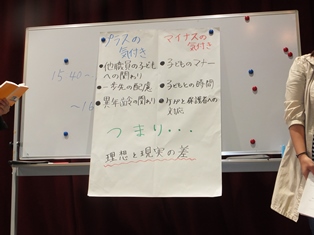 プラスの
気付き
マイナスの
気付き
・他職員の子ども
への関わり
・一歩先の配慮
・異年齢の関わり
・子どものマナー
・子どもとの時間
・ケガと保護者への
対応
15:40〜
〜16
つまり・・・
理想と現実の差